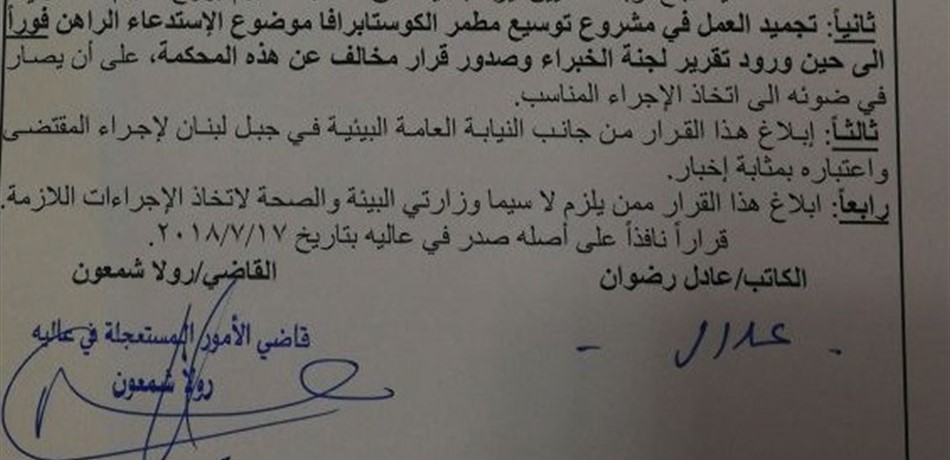 ثانياً: تجميد العمل في مشروع توسيع مطمر الكوستابرافا موضوع الإستدعاء الراهن فوراً
الى حين ورود تقرير لجنة الخبراء وصدور قرار مخالف عن هذه المحكمة، على أن يصار
في ضوئه الى اتخاذ الإجراء المناسب.
ثالثاً: إبلاغ هذا القرار من جانب النيابة العامة البيئية في جبل لبنان لإجراء المقتضى
واعتباره بمثابة إخبار.
رابعاً: ابلاغ هذا القرار ممن يلزم لا سيما وزارتي البيئة والصحة لاتخاذ الإجراءات اللازمة.
قراراً نافذاً على أصله صدر في عاليه بتاريخ ٢٠١٨/٧/١٧.
الكاتب/عادل رضوان القاضي/رولا شمعون
قاضي الأمور المستعجلة في عاليه
رولا شمعون